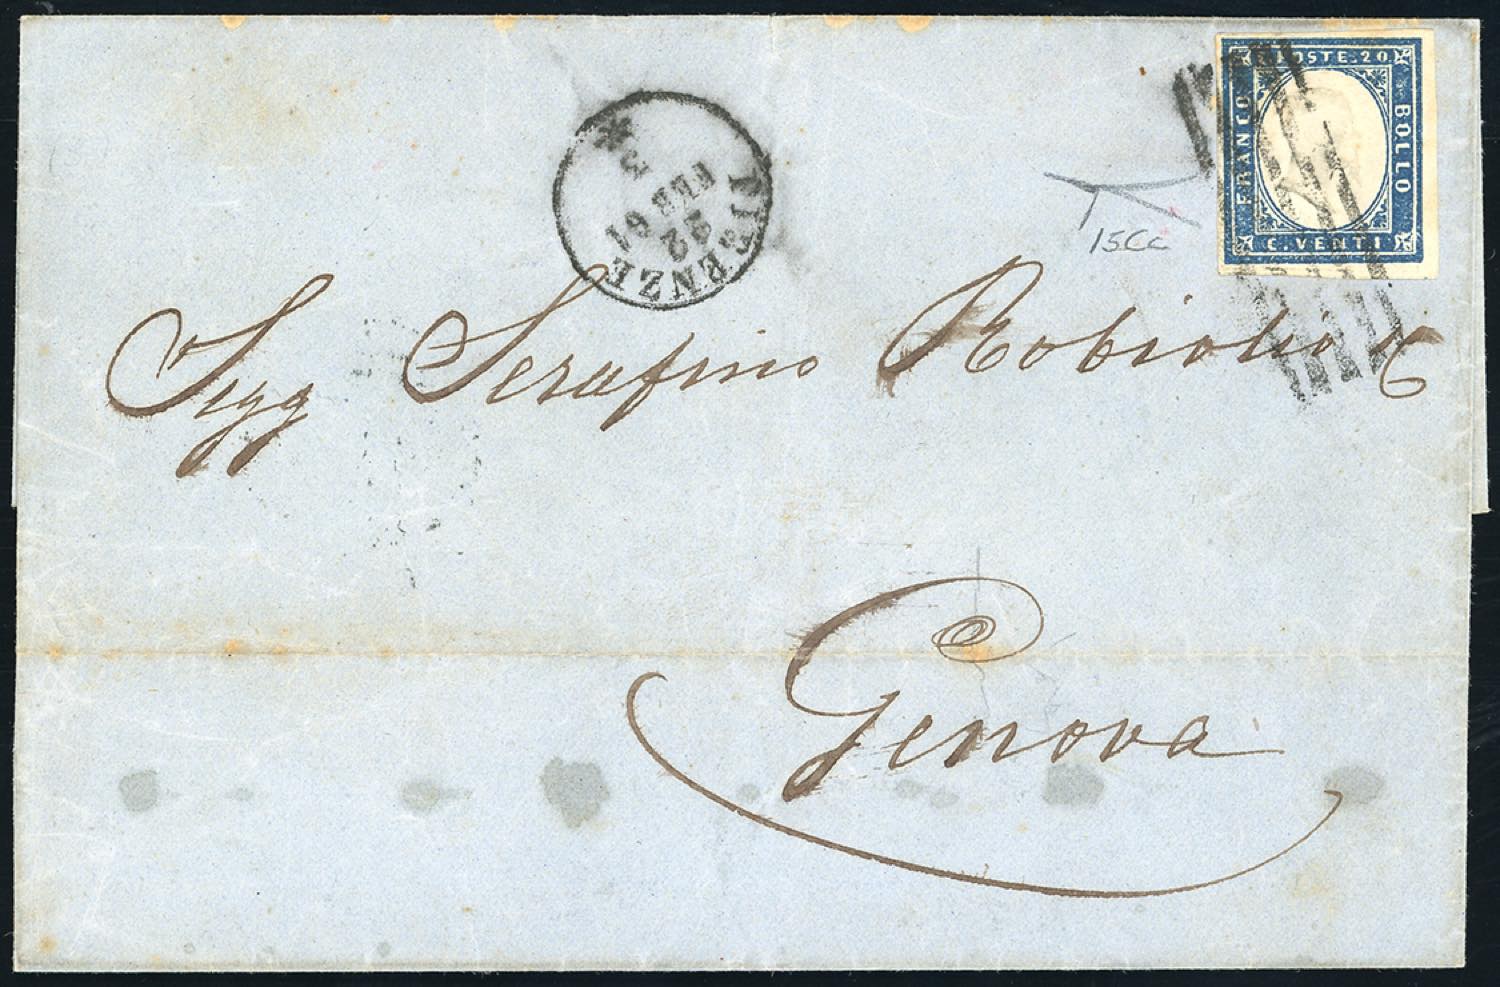 POSTE.20
FRANCO
BOLLO
C.VENTI
FIRENZE
22
FEB 61
15Cc
Sigg Serafino Robiolio & C
Genova